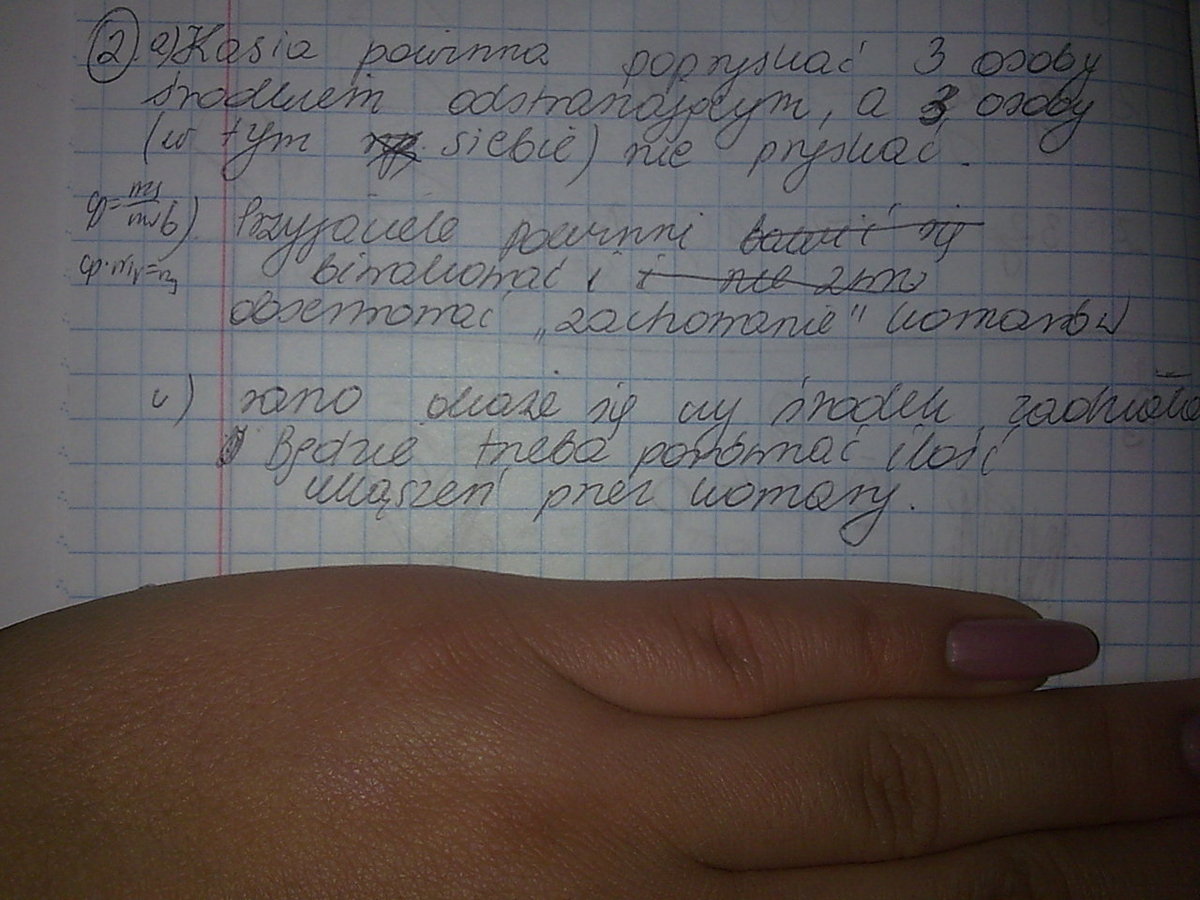 2) a) Kasia powinna popryskać 3 osoby
środkiem odstraszającym, a 3 osoby
(w tym siebie) nie pryskać.
b) Przyjaciele powinni bawić się
biwakować i i nie zm
obserwować „zachowanie" komarów
c) rano okaże się czy środek zadziała
Będzie trzeba porównać ilość
ukąszeń przez komary.